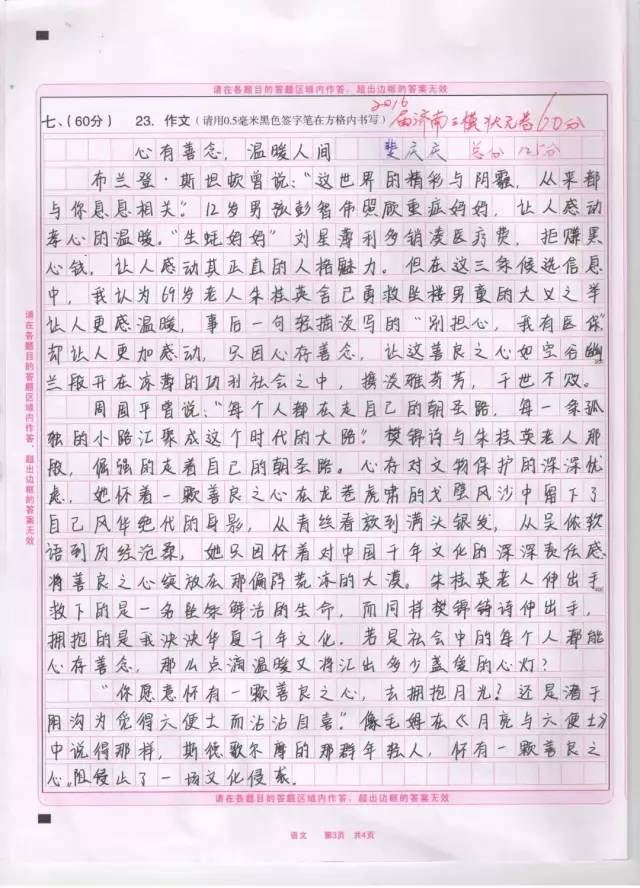 请在各题目的答题区域内作答，超出边框的答案无效
七、(60分) 23. 作文(请用0.5毫米黑色签字笔在方格内书写) 2016届济南三模状元卷 60分
心有善念，温暖人间 总分 125分
布兰登·斯坦顿曾说："这世界的精彩与阴霾，从来都
与你息息相关"。12岁男孩彭智伟照顾重症妈妈，让人感动
孝心的温暖。"生蚝妈妈"刘星薄利多销凑医疗费，拒赚黑
心钱，让人感动其正直的人格魅力。但在这三条候选信息
中，我认为69岁老人朱桂英舍己勇救坠楼男童的大义之举
让人更感温暖，事后一句轻描淡写的"别担心，我有医保"
却让人更加感动，只因心存善念，让这善良之心如空谷幽
兰般开在凉薄的功利社会之中，携淡雅芬芳，千世不败。
周国平曾说："每个人都在走自己的朝圣路，每一条孤
独的小路汇聚成这个时代的大路"。樊锦诗与朱桂英老人那
般，倔强的走着自己的朝圣路。心存对文物保护的深深忧
虑，她怀着一颗善良之心在龙卷虎啸的戈壁风沙中留下了
自己风华绝代的身影，从青丝看放到满头银发，从吴侬软
语到历经沧桑，她只因怀着对中国千年文化的深深责任感
将善良之心绽放在那偏僻荒凉的大漠。朱桂英老人伸出手
救下的是一名坠楼鲜活的生命，而同样樊锦诗伸出手，
拥抱的是我泱泱华夏千年文化。若是社会中的每个人都能
心存善念，那么点滴温暖又将汇出多少盖象的心灯？
"你愿意怀有一颗善良之心，去拥抱月光？还是潜于
阴沟为觉得六便士而沾沾自喜"。像毛姆在《月亮与六便士》
中说得那样，斯德歌尔摩的那群年轻人，怀有一颗善良之
心，阻止了一场文化侵袭。
请在各题目的答题区域内作答，超出边框的答案无效
语文 第3页 共4页
请在各题目的答题区域内作答，超出边框的答案无效
请在各题目的答题区域内作答，超出边框的答案无效